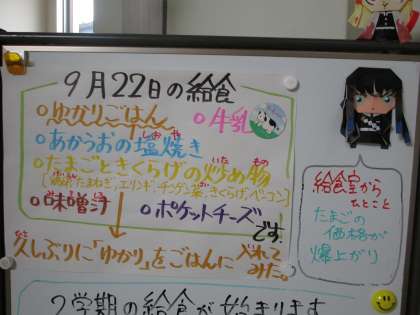 9月22日の給食
ゆかりごはん
牛乳
あかうおの塩焼き
しおや
たまごときくらげの炒め物
いた もの
たまねぎ、エリンギ、チンゲン菜、きくらげ、ベーコン
味噌汁
ポケットチーズ
です。
久しぶりに「ゆかり」をごはんに入れてみた。
2学期の給食が始まります
給食室から
ひとこと
たまごの
価格が
爆上がり